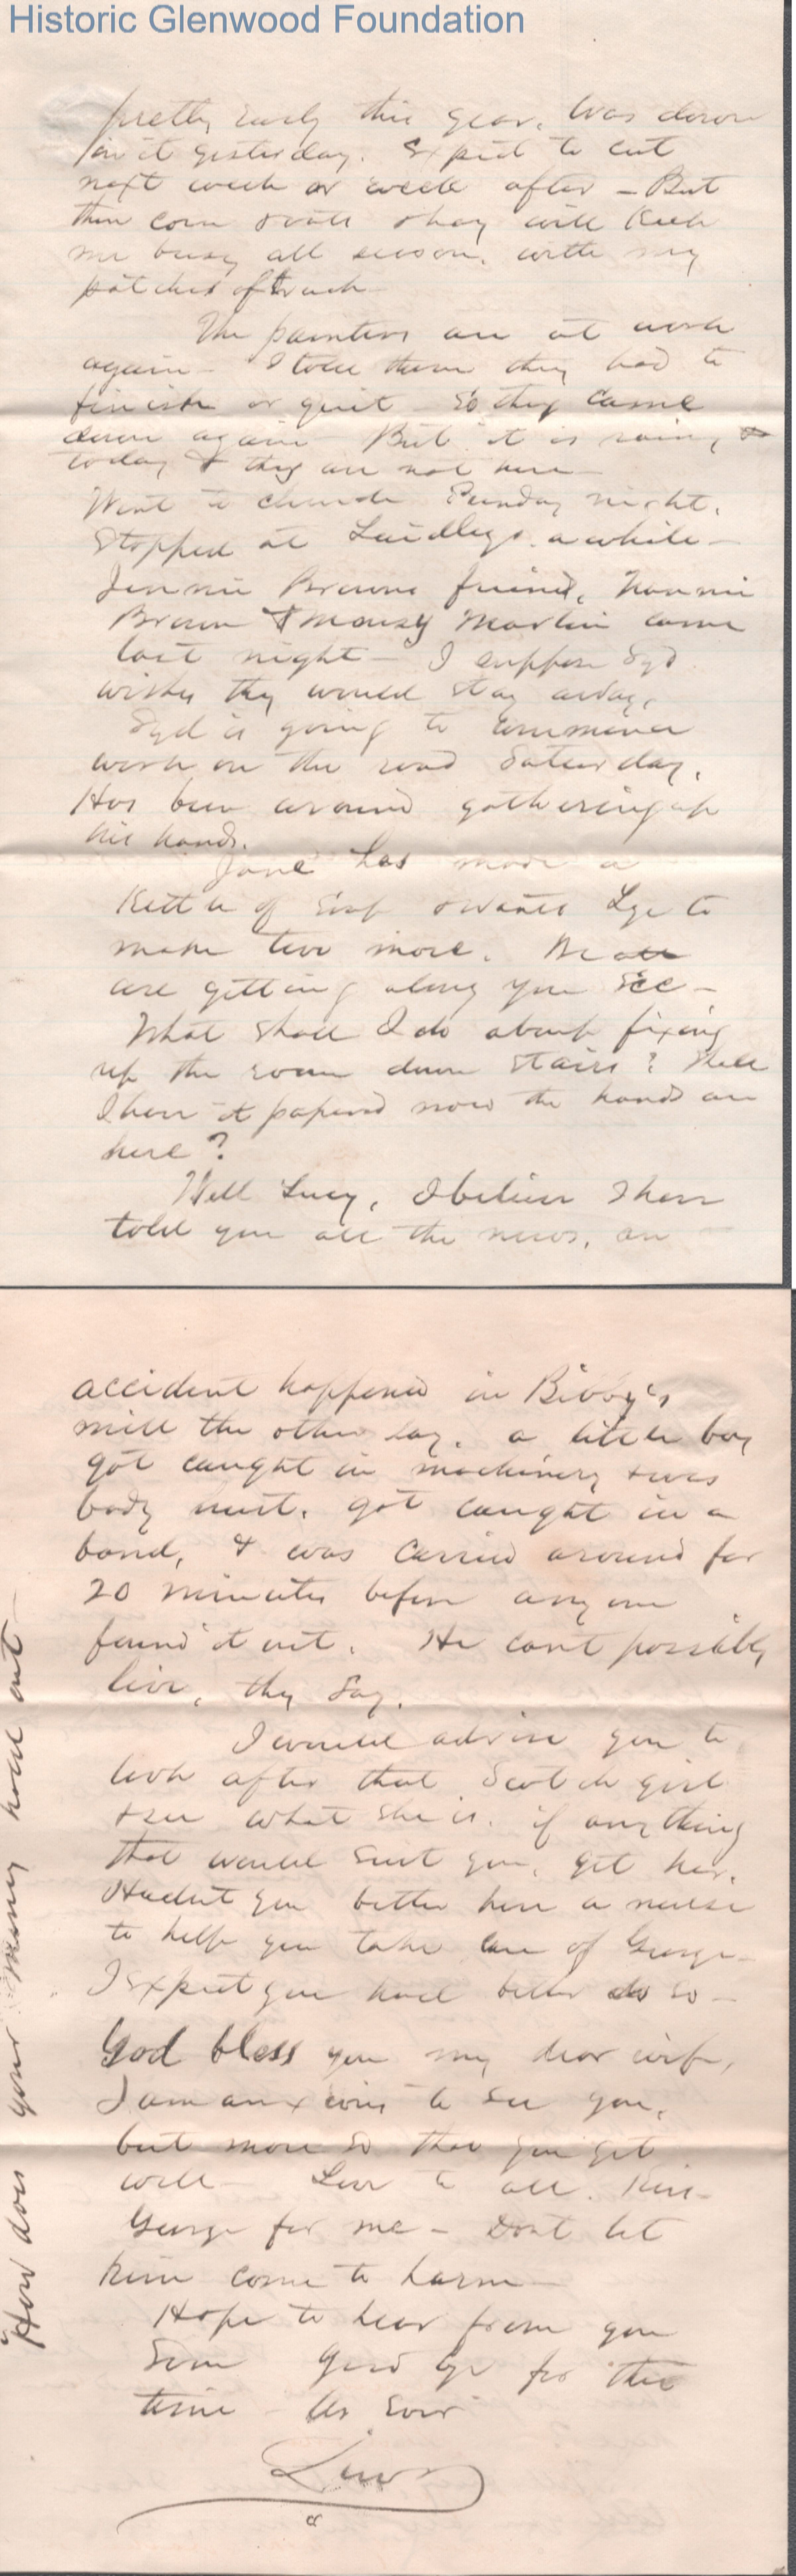 Historic Glenwood Foundation
pretty early this year. Was down
on it yesterday. Expect to cut
next week or week after – But
then corn oats & hay will keep
me busy all season, with my
patches of truck
The painters are at work
again – I told them they had to
finish or quit so they came
down again But it is raining
today & they are not here –
Went to church Sunday night.
Stopped at Laidleys awhile –
Jennie Browns friend, Nannie
Brown & Mousy Martin came
last night – I suppose Syd
wishes they would stay away.
Syd is going to commence
work on the road Saturday.
Has been around gathering up
his hands.
Jane has made a
Kettle of soap & wants Lye to
make two more. We all
are getting along you see –
What shall I do about fixing
up the room down stairs? Shall
I have it papered now the hands are
here?
Well Lucy, I believe I have
told you all the news, an
accident happened in Bibby's
mill the other day. a little boy
got caught in machinery & was
badly hurt. got caught in a
band, & was carried around for
20 minutes before any one
found it out. He cant possibly
live, they say.
I would advise you to
look after that Scotch girl
& see what she is. if any thing
that would suit you, get her.
Hadent you better have a nurse
to help you take care of George –
I expect you had better do so –
God bless you my dear wife,
I am anxious to see you,
but more so that you get
well – Love to all. Kiss
George for me – Dont let
him come to harm –
Hope to hear from you
Soon Good bye for this
time – As Ever
Lewis
How does your money hold out –